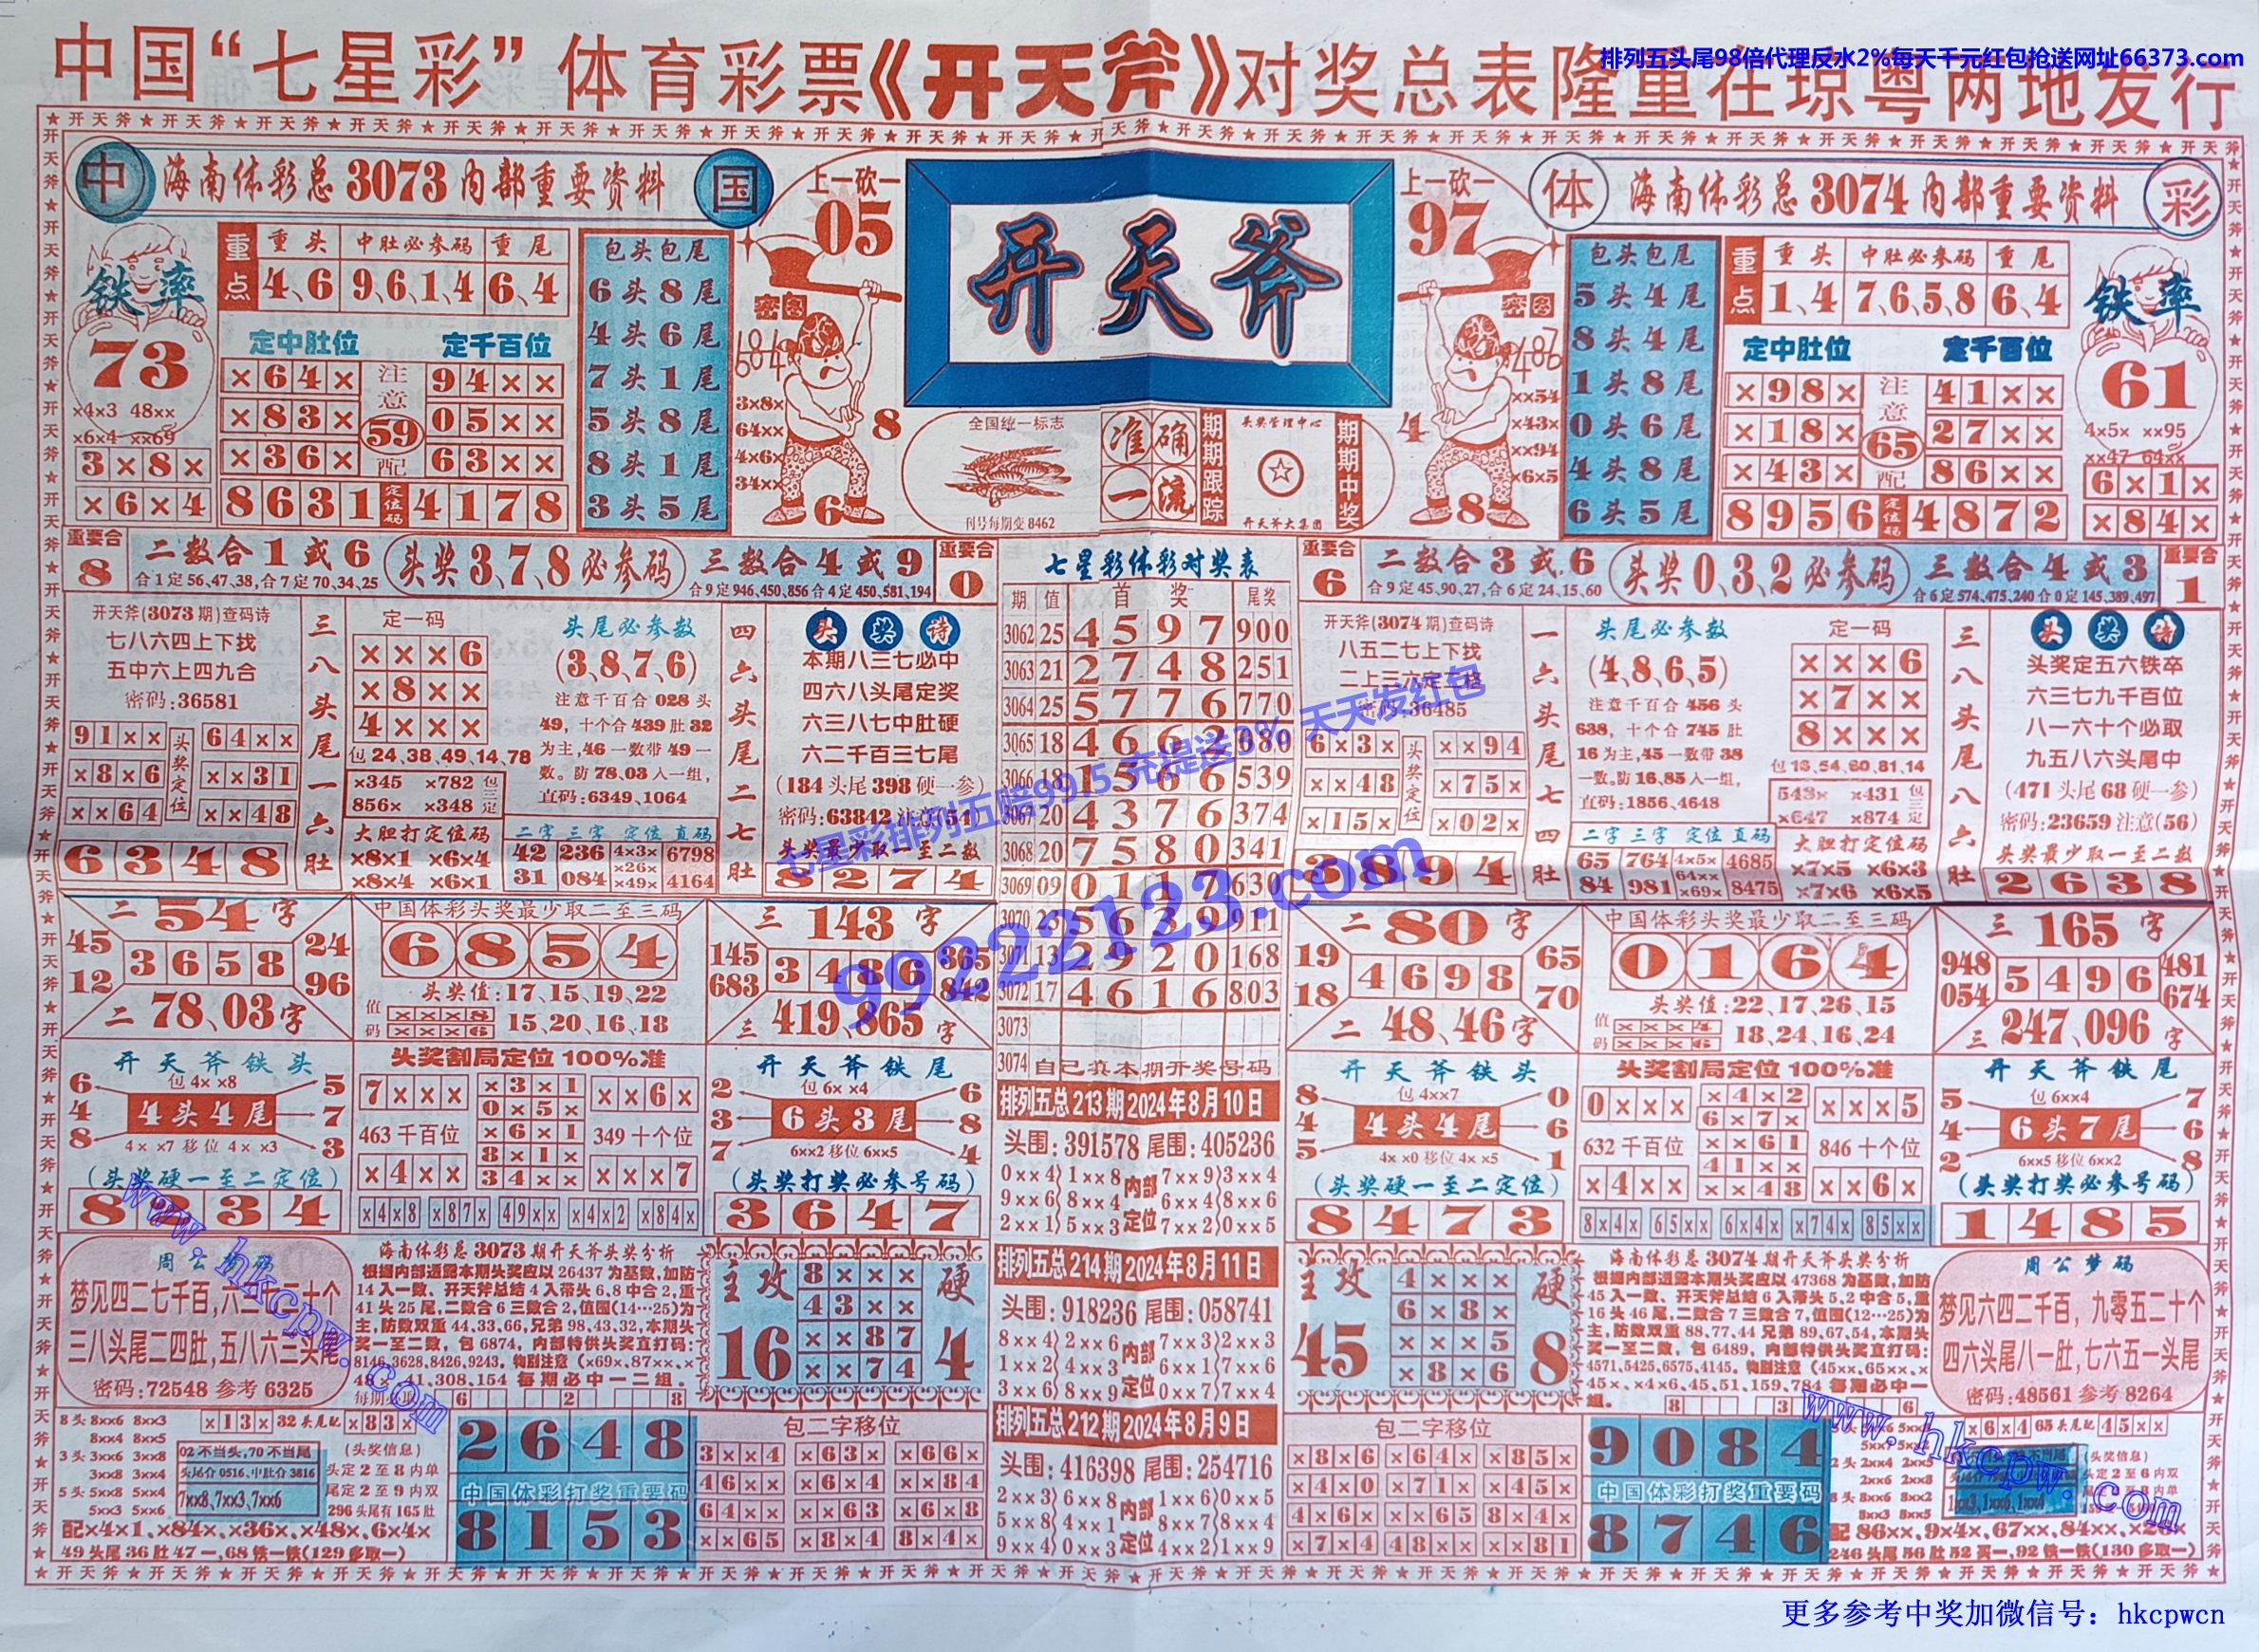 中国“七星彩”体育彩票《开天斧》对奖总表隆重在琼粤两地发行
排列五头尾98倍代理反水2%每天千元红包抢送网址66373.com
中 海南体彩总3073内部重要资料 国
上一砍一
05
开天斧
上一砍一
97
体 海南体彩总3074内部重要资料 彩
铁率
73
×4×3 48××
×6×4 ××69
3×8×
×6×4
重点
重头 中肚必参码 重尾
4、6 9、6、1、4 6、4
定中肚位 定千百位
×64× 94××
×83× 05××
×36× 63××
注意 59 配
8631 定位码 4178
包头包尾
6头8尾
4头6尾
7头1尾
5头8尾
8头1尾
3头5尾
密图
3×8×
64××
4×6×
34××
8
6
全国统一标志
刊号每期变8462
准确一流
期期跟踪
头奖管理中心
开天斧大集团
期期中奖
密图
××54
×43×
××94
×6×5
4
8
包头包尾
5头4尾
8头4尾
1头8尾
0头6尾
4头8尾
6头5尾
重点
重头 中肚必参码 重尾
1、4 7、6、5、8 6、4
定中肚位 定千百位
×98× 41××
×18× 27××
×43× 86××
注意 65 配
8956 定位码 4872
铁率
61
4×5× ××95
××47 64××
6×1×
×84×
重要合
8
二数合1或6
合1定56,47,38,合7定70,34,25
头奖3、7、8必参码
三数合4或9
合9定946,450,856合4定450,581,194
重要合
0
七星彩体彩对奖表
期 值 首奖 尾奖
3062 25 4597 900
3063 21 2748 251
3064 25 5776 770
3065 18
3066 18
539
3067 20 4376 374
3068 20 7580 341
3069 09 0117 630
3070 911
3071 13 2920 168
3072 17 4616 803
3073
3074 自己填本期开奖号码
重要合
6
二数合3或6
合9定45,90,27,合6定24,15,60
头奖0、3、2必参码
三数合4或3
合6定574,475,240合0定145,389,497
重要合
1
开天斧(3073期)查码诗
七八六四上下找
五中六上四九合
密码:36581
91×× 64××
×8×6 ××31
××64 ××48
头奖定位
6348
三八头尾一六肚
定一码
×××6
×8××
4×××
包24,38,49,14,78
×345 ×782
856× ×348
包三定
大胆打定位码
×8×1 ×6×4
×8×4 ×6×1
头尾必参数
(3、8、7、6)
注意千百合028头
49,十个合439肚32
为主,46一数带49一
数。防78、03入一组,
直码:6349、1064
二字 三字 定位 直码
42 236 4×3× 6798
×26×
31 084 ×49× 4164
四六头尾二七肚
头奖诗
本期八三七必中
四六八头尾定奖
六三八七中肚硬
六二千百三七尾
(184头尾398硬一参)
密码:63842注意(54)
头奖最少取一至二数
8274
开天斧(3074期)查码诗
八五二七上下找
6×3× ××94
××48 ×75×
×15× ×02×
头奖定位
3894
一六头尾七四肚
头尾必参数
(4、8、6、5)
注意千百合456头
638,十个合745肚
16为主,45一数带38
一数。防16、85入一组,
直码:1856、4648
二字 三字 定位 直码
65 764 4×5× 4685
64××
84 981 ×69× 8475
定一码
×××6
×7××
8×××
包16,54,60,81,14
543× ×431
×647 ×874
包三定
大胆打定位码
×7×5 ×6×3
×7×6 ×6×5
三八头尾八六肚
头奖诗
头奖定五六铁卒
六三七九千百位
八一六十个必取
九五八六头尾中
(471头尾68硬一参)
密码:23659注意(56)
头奖最少取一至二数
2638
二 54 字
45 24
3658
12 96
二 78、03 字
中国体彩头奖最少取二至三码
6854
头奖值:17、15、19、22
值码 ×××8 ×××6 15、20、16、18
三 143 字
145 365
3486
683 842
三 419、865 字
二 80 字
19 65
4698
18 70
二 48、46 字
中国体彩头奖最少取二至三码
0164
头奖值:22、17、26、15
值码 ×××4 ×××6 18、24、16、24
三 165 字
948 481
5496
054 674
三 247、096 字
开天斧铁头
包4× ×8
6 5
4 4头4尾 7
8 3
4× ×7移位4× ×3
(头奖硬一至二定位)
8234
头奖割局定位100%准
7××× ×3×1 ××6×
0×5×
463千百位 ×6×1 349十个位
8×1×
×4×× 34×× ×××7
×4×8 ×87× 49×× ×4×2 ×84×
开天斧铁尾
包6× ×4
2 6
3 6头3尾 8
7 4
6××2移位6××5
(头奖打奖必参号码)
3647
排列五总213期2024年8月10日
头围:391578 尾围:405236
0××4 1××8 7××9 3××4
9××6 8××4 6××4 8××6
2××1 5××3 7××2 0××5
内部定位
排列五总214期2024年8月11日
头围:918236 尾围:058741
8××4 2××6 7××3 2××3
1××2 4××3 6××1 7××6
3××6 8××9 0××7 7××4
内部定位
排列五总212期2024年8月9日
头围:416398 尾围:254716
2××3 6××8 1××6 0××5
5××8 4××1 8××7 8××4
9××4 0××3 4××2 1××9
内部定位
开天斧铁头
包4××7
8 0
4 4头4尾 6
5 1
4× ×0移位4× ×5
(头奖硬一至二定位)
8473
头奖割局定位100%准
0××× ×4×2 ×××5
6×7×
632千百位 ××61 846十个位
41××
×4×× ××48 ××6×
8×4× 65×× 6×4× ×74× 85××
开天斧铁尾
包6××4
5 7
4 6头7尾 6
2 8
6××5移位6××2
(头奖打奖必参号码)
1485
周公梦码
三八头尾二四肚,五八六三头尾
密码:72548参考6325
海南体彩总3073期开天斧头奖分析
根据内部透露本期头奖应以26437为基数,加防
14入一数、开天斧总结4入带头6、8中合2,重
41头25尾,二数合6三数合2,值围(14…25)为
主,防数双重44,33,66,兄弟98,43,32,本期头
奖一至二数,包6874,内部特供头奖直打码:
8146,3628,8426,9243。特别注意(×69×、87××、×
41,308,154每期必中一二组。
6 2 8
主攻 硬
16 4
8×××
43××
××87
××74
主攻 硬
45 8
4×××
6×8×
×××5
×8×6
海南体彩总3074期开天斧头奖分析
根据内部透露本期头奖应以47368为基数,加防
45入一数、开天斧总结6入带头5、2中合5,重
16头46尾,二数合7三数合7,值围(12…25)为
主,防数双重88,77,44兄弟89,67,54,本期头
奖一至二数,包6489,内部特供头奖直打码:
4571,5425,6575,4145。特别注意(45××、65××、×
45×、×4×6、45,51,159,784每期必中一
组。
8 3 6
周公梦码
梦见六四二千百,九零五二十个
四六头尾八一肚,七六五一头尾
密码:48561参考8264
8头8××6 8××3
8××4 8××5
3头3××6 3××8
3××8 3××4
5头5××8 5××4
5××3 5××6
×13× 32头尾配 ×83×
02不当头,70不当尾
头尾合0516、中肚合3816
7××8、7××3、7××6
(头奖信息)
头定2至8内单
尾定2至9内双
296头尾有165肚
配×4×1、×84×、×36×、×48×、6×4×
49头尾36肚47一,68铁一铁(129多取一)
2648
中国体彩打奖重要码
8153
包二字移位
3××4 ×63× ×66×
46×× ×6×4 ××84
64×× ××63 ×6×8
××65 ×8×4 8×4×
包二字移位
×8×6 ×64× ×85×
×4×0 ×71× ×45×
4×6× ××65 8×4×
×7×4 48×× ××81
9084
中国体彩打奖重要码
8746
×6×4 65头尾配 45××
2头2××4 2××5
2××6 2××8
8头8××6 8××2
8××3 8××5
(头奖信息)
头定2至6内双
配86××、9×4×、67××、84××、×26×
246头尾56肚52买一,92铁一铁(130多取一)
七星彩排列五赔99.5 充提送3% 天天发红包
99222123.com
www.hkcpw.com
www.hkcpw.com
更多参考中奖加微信号：hkcpwcn